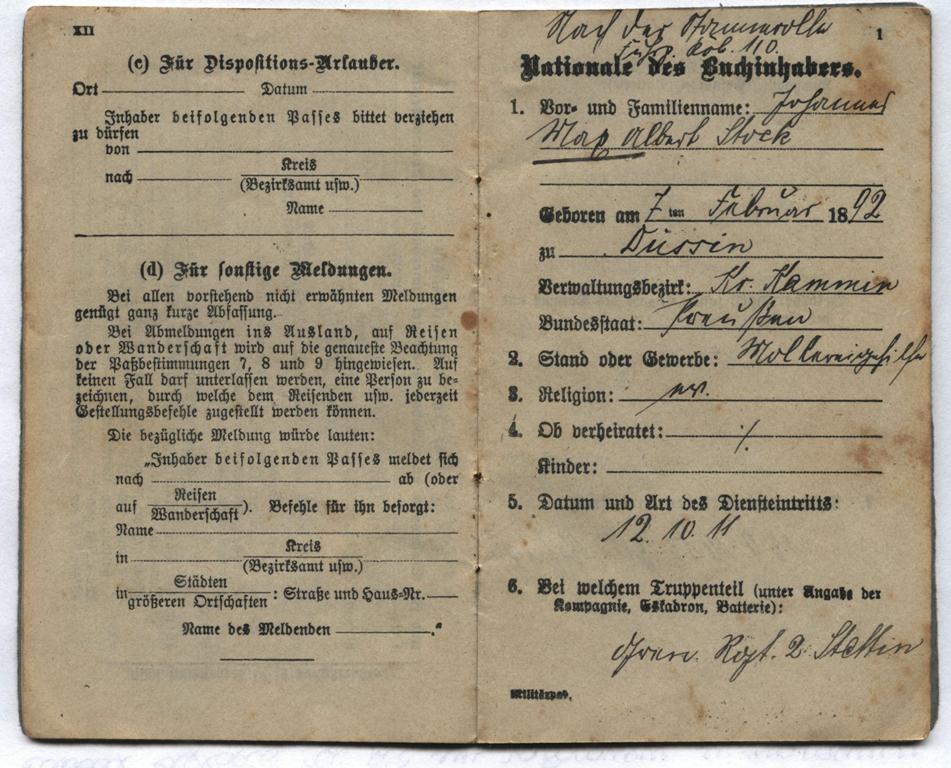 XII
(c) Für Dispositions-Urlauber.
Ort Datum
Inhaber beifolgenden Passes bittet verziehen
zu dürfen
von
nach Kreis
(Bezirksamt usw.)
Name
(d) Für sonstige Meldungen.
Bei allen vorstehend nicht erwähnten Meldungen
genügt ganz kurze Abfassung.
Bei Abmeldungen ins Ausland, auf Reisen
oder Wanderschaft wird auf die genaueste Beachtung
der Paßbestimmungen 7, 8 und 9 hingewiesen. Auf
keinen Fall darf unterlassen werden, eine Person zu be-
zeichnen, durch welche dem Reisenden usw. jederzeit
Gestellungsbefehle zugestellt werden können.
Die bezügliche Meldung würde lauten:
„Inhaber beifolgenden Passes meldet sich
nach ab (oder
auf Reisen
Wanderschaft). Befehle für ihn besorgt:
Name
in Kreis
(Bezirksamt usw.)
in Städten
größeren Ortschaften: Straße und Haus-Nr.
Name des Meldenden ."
Nach der Stammrolle
1
110.
Nationale des Buchinhabers.
1. Vor- und Familienname: Johannes
Max Albert Stock
Geboren am 7ten Februar 1892
zu Düssin
Verwaltungsbezirk: Kr. Kammin
Bundesstaat: Preußen
2. Stand oder Gewerbe: Molkereigehilfe
3. Religion: ev.
4. Ob verheiratet: ./.
Kinder:
5. Datum und Art des Diensteintritts:
12. 10. 11
6. Bei welchem Truppenteil (unter Angabe der
Kompagnie, Eskadron, Batterie):
Gren. Rgt. 2 Stettin
Militärpaß.